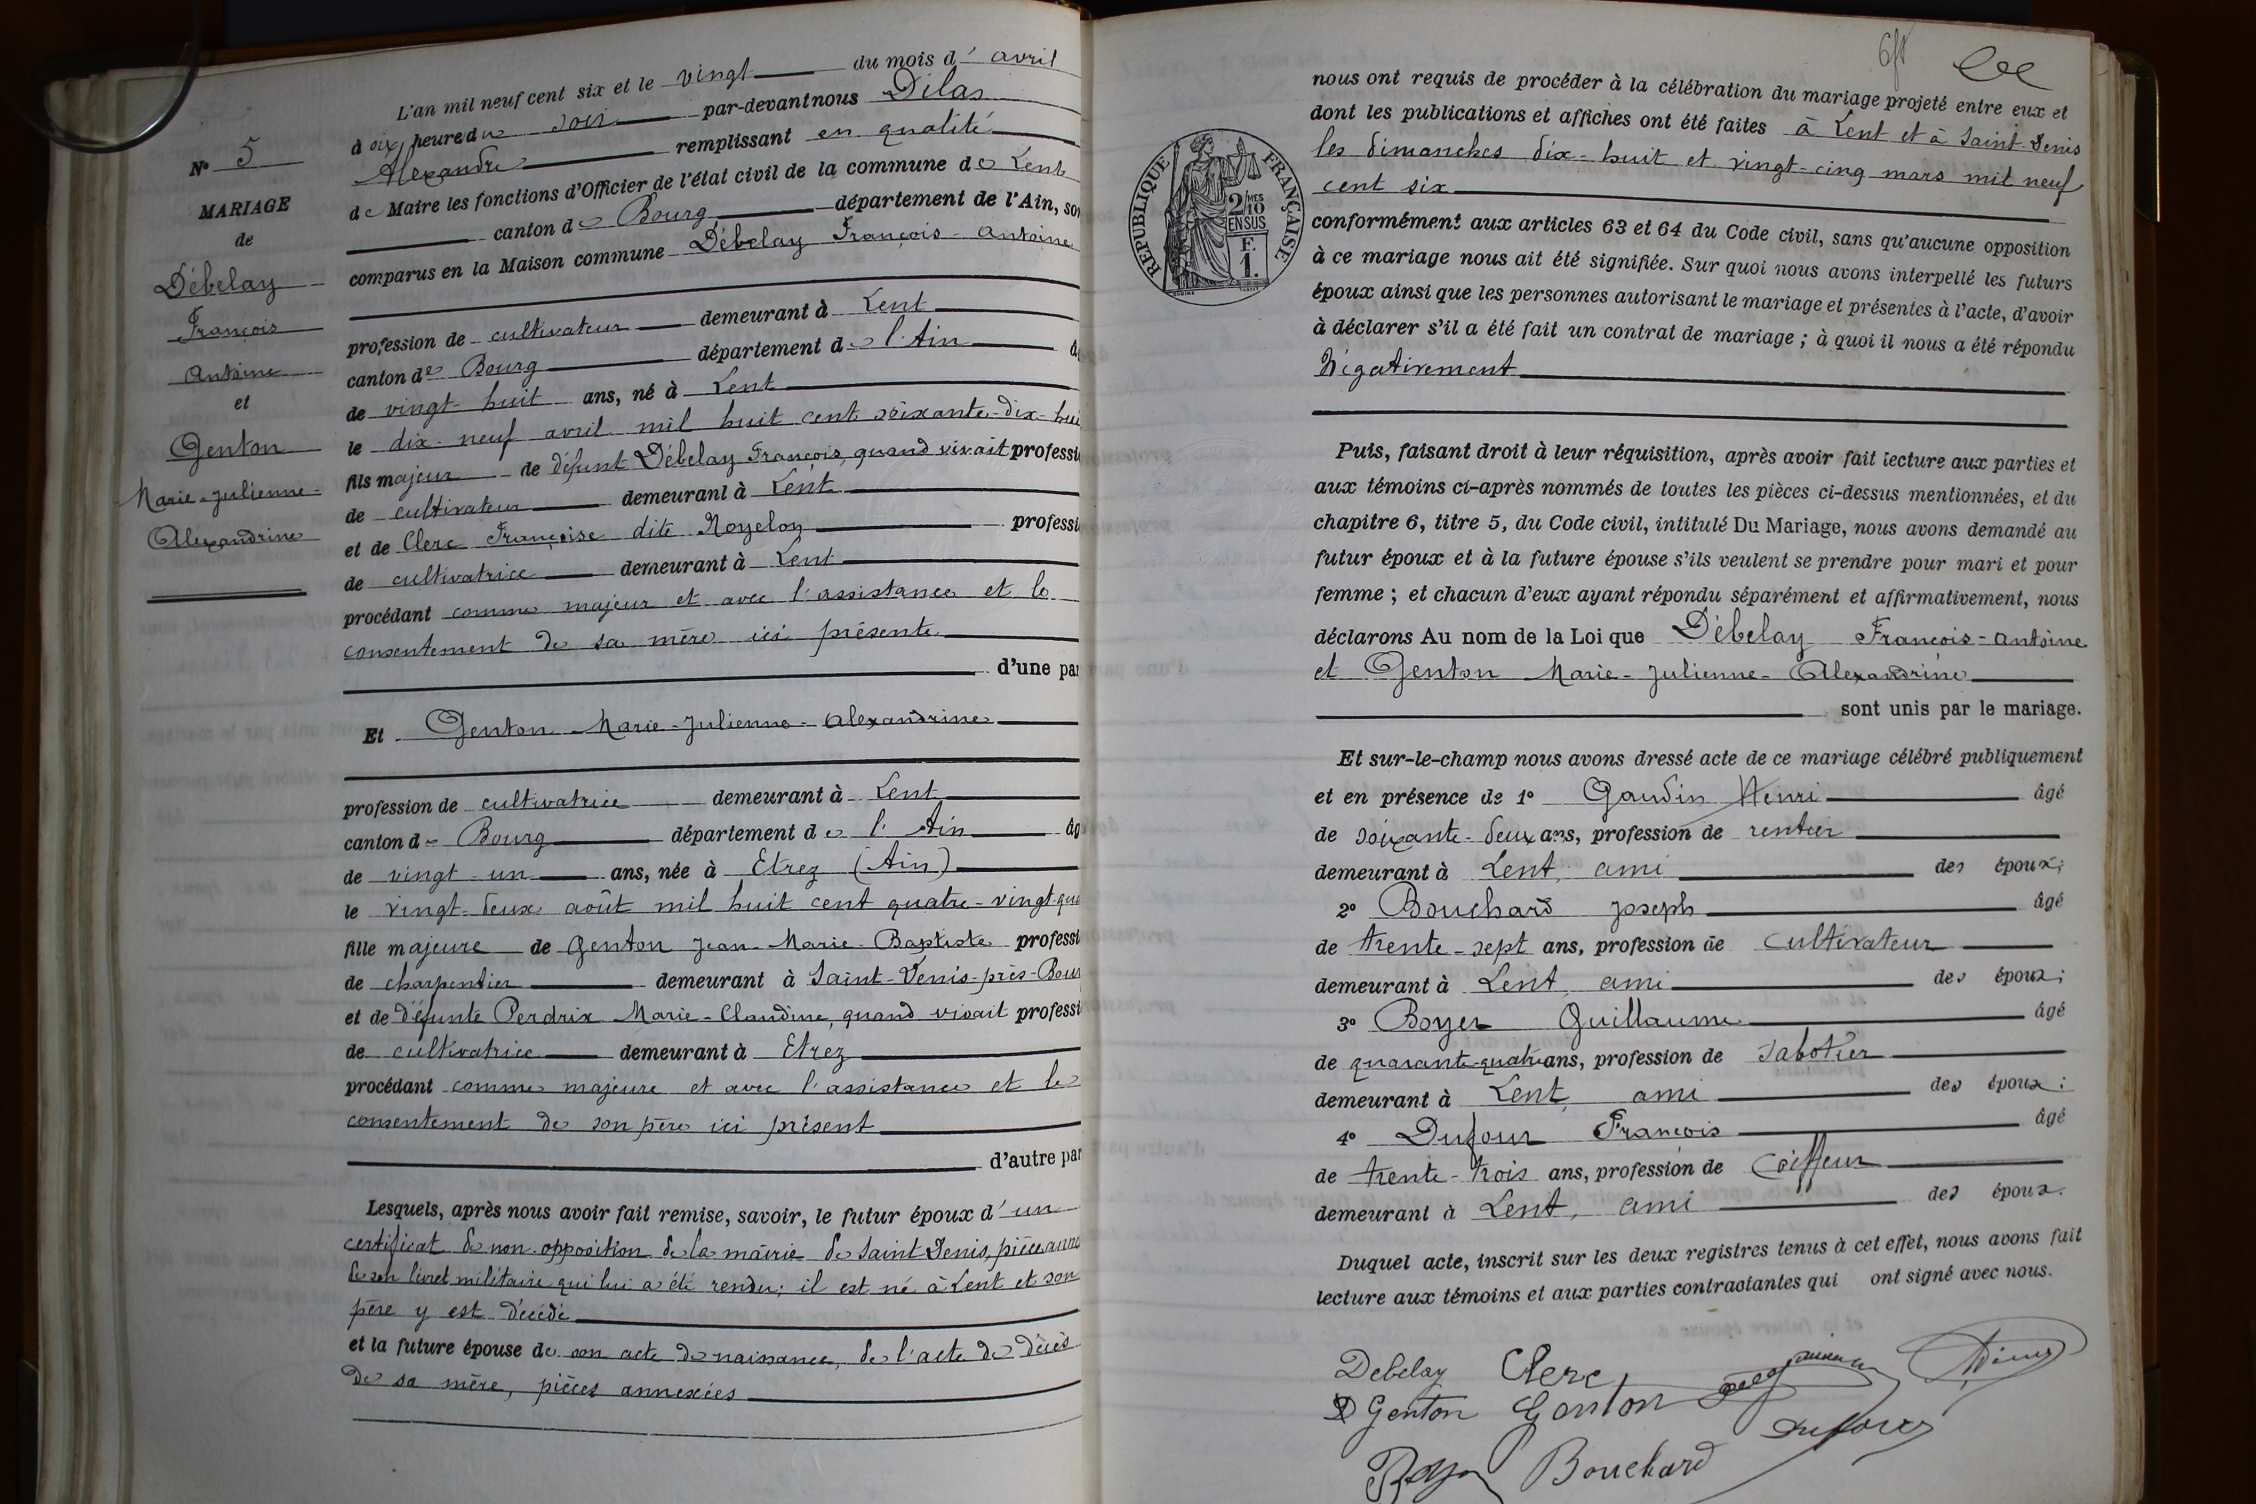 L'an mil neuf cent six et le vingt du mois d' avril
à six heure du soir par-devant nous Dilas
Alexandre remplissant en qualité
de Maire les fonctions d'Officier de l'état civil de la commune de Lent
canton de Bourg département de l'Ain, so
comparus en la Maison commune Débelay François-Antoine
profession de cultivateur demeurant à Lent
canton de Bourg département de l'Ain
de vingt-huit ans, né à Lent
le dix-neuf avril mil huit cent soixante-dix-hui
fils majeur de défunt Débelay François, quand vivait professi
de cultivateur demeurant à Lent
et de Clerc Françoise dite Noyelon professi
de cultivatrice demeurant à Lent
procédant comme majeur et avec l'assistance et le
consentement de sa mère ici présente
d'une par
Et Genton Marie-Julienne-Alexandrine
profession de cultivatrice demeurant à Lent
canton de Bourg département de l'Ain âg
de vingt-un ans, née à Etrez (Ain)
le vingt-deux août mil huit cent quatre-vingt-qua
fille majeure de Genton Jean-Marie-Baptiste professi
de charpentier demeurant à Saint-Denis-près-Bour
et de défunte Perdrix Marie-Claudine, quand vivait professi
de cultivatrice demeurant à Etrez
procédant comme majeure et avec l'assistance et le
consentement de son père ici présent
d'autre par
Lesquels, après nous avoir fait remise, savoir, le futur époux d'un
certificat de non-opposition de la mairie de Saint Denis, pièce anne
de son livret militaire qui lui a été rendu; il est né à Lent et son
père y est décédé
et la future épouse de son acte de naissance, de l'acte de décès
de sa mère, pièces annexées
N° 5
MARIAGE
de
Débelay
François
Antoine
et
Genton
Marie-Julienne-
Alexandrine
RÉPUBLIQUE FRANÇAISE
2/10MES
EN SUS
F.
1.
nous ont requis de procéder à la célébration du mariage projeté entre eux et
dont les publications et affiches ont été faites à Lent et à Saint-Denis
les dimanches dix-huit et vingt-cinq mars mil neuf
cent six
conformément aux articles 63 et 64 du Code civil, sans qu'aucune opposition
à ce mariage nous ait été signifiée. Sur quoi nous avons interpellé les futurs
époux ainsi que les personnes autorisant le mariage et présentes à l'acte, d'avoir
à déclarer s'il a été fait un contrat de mariage ; à quoi il nous a été répondu
Négativement
Puis, faisant droit à leur réquisition, après avoir fait lecture aux parties et
aux témoins ci-après nommés de toutes les pièces ci-dessus mentionnées, et du
chapitre 6, titre 5, du Code civil, intitulé Du Mariage, nous avons demandé au
futur époux et à la future épouse s'ils veulent se prendre pour mari et pour
femme ; et chacun d'eux ayant répondu séparément et affirmativement, nous
déclarons Au nom de la Loi que Débelay François-Antoine
et Genton Marie-Julienne-Alexandrine
sont unis par le mariage.
Et sur-le-champ nous avons dressé acte de ce mariage célébré publiquement
et en présence de 1° Gaudin Henri âgé
de soixante-deux ans, profession de rentier
demeurant à Lent, ami des époux;
2° Bouchard Joseph âgé
de trente-sept ans, profession de cultivateur
demeurant à Lent, ami des époux;
3° Boyer Guillaume âgé
de quarante-quatre ans, profession de sabotier
demeurant à Lent, ami des époux;
4° Dufour François âgé
de trente-trois ans, profession de Coiffeur
demeurant à Lent, ami des époux.
Duquel acte, inscrit sur les deux registres tenus à cet effet, nous avons fait
lecture aux témoins et aux parties contractantes qui ont signé avec nous.
Debelay Clerc
Genton Genton
Dufour
Boyer Bouchard